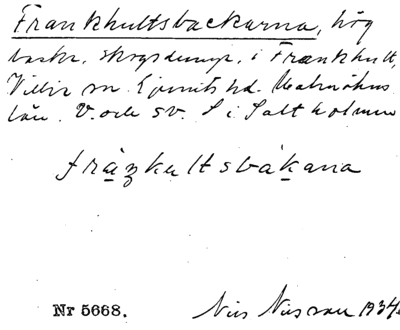 Frankhultsbackarna, hög
backe, skogsdunge, i Frankhult,
Villie sn. Ljunits hd. Malmöhus
län. V. och SV. S i Saltholmen
fräŋkultsbákana
Nr 5668. Nils Nilsson 1934.